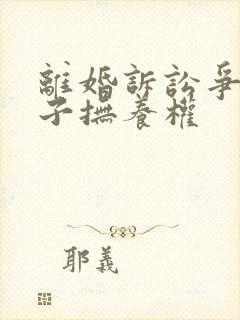 離婚訴訟爭
子撫養權
耶義